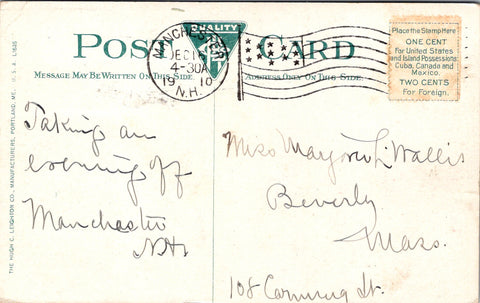 POST CARD
QUALITY
MESSAGE MAY BE WRITTEN ON THIS SIDE
ADDRESS ONLY ON THIS SIDE
MANCHESTER
DEC 16
4-30A
1910
N.H.
Place the Stamp Here
ONE CENT
for United States
and Island Possessions
Cuba, Canada and
Mexico.
TWO CENTS
for Foreign.
THE HUGH C. LEIGHTON CO., MANUFACTURERS, PORTLAND, ME., U.S.A.
Taking an
evening off
Manchester
N.H.
Miss Marjorie L. Wallis
Beverly
Mass.
108 Corning St.